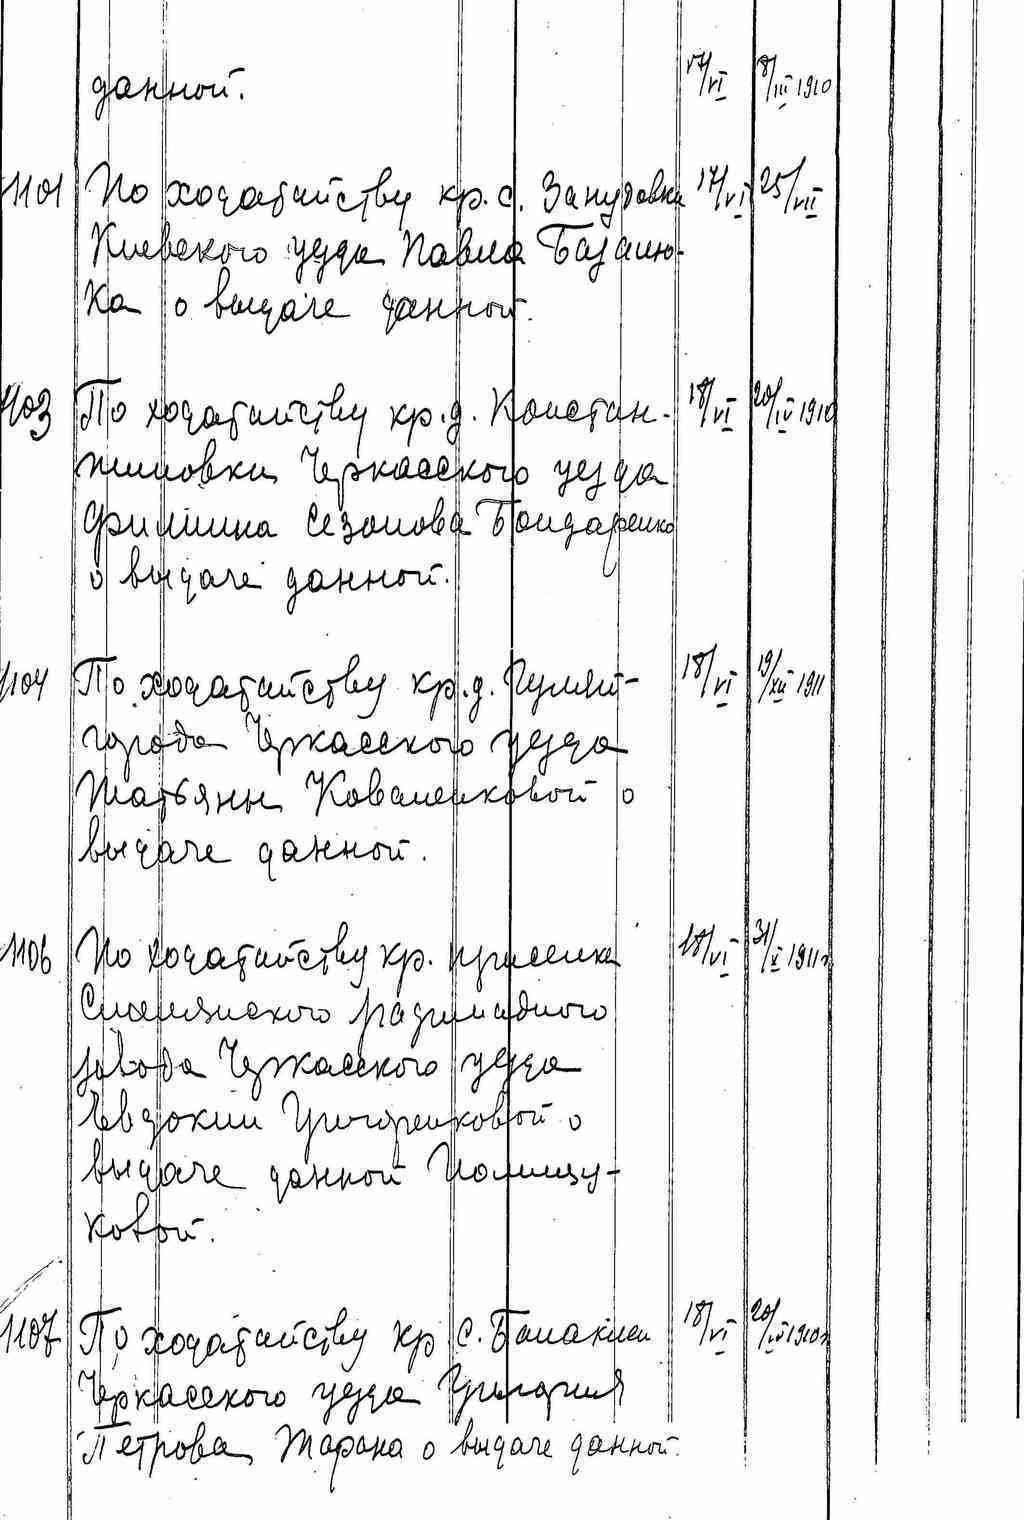 данной. 17/VI 8/III 1910
1101 По ходатайству кр. с. Зануdовки 17/VI 25/VII
Киевского уезда Павла Базалю-
ка о выдаче данной.
1103 По ходатайству кр. д. Констан- 18/VI 20/IV 1910
тиновки Черкасского уезда
Филиппа Сезонова Бондаренко
о выдаче данной.
1104 По ходатайству кр. д. Гуляй- 18/VI 19/XII 1911
города Черкасского уезда
Татьяны Коваленковой о
выдаче данной.
1106 По ходатайству кр. приселка 18/VI 31/X 1911г
Смелянского рафинадного
завода Черкасского уезда
Евдокии Григоренковой о
выдаче данной Полищу-
ковой.
1107 По ходатайству кр с. Балаклеи 18/VI 20/IV 1910г
Черкасского уезда Григория
Петрова Тарана о выдаче данной.